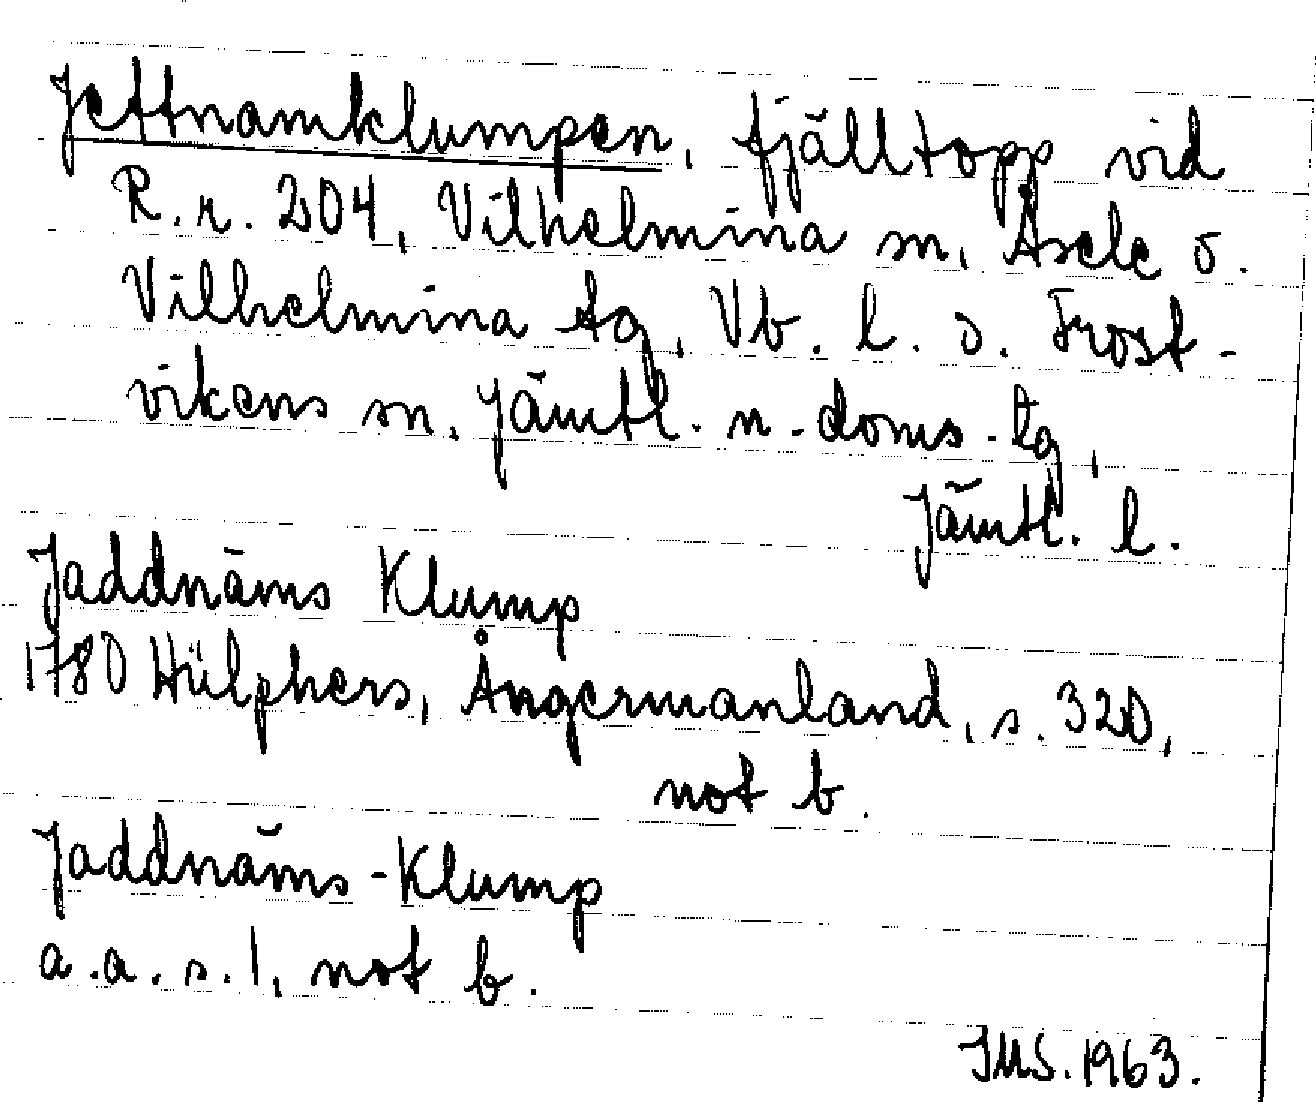 Jettnamklumpen, fjälltopp vid
R.r. 204, Vilhelmina sn, Åsele o.
Vilhelmina tg, Vb. l. o. Frost-
vikens sn, Jämtl. n. doms. tg,
Jämtl. l.
Jaddnäms Klump
1780 Hülphers, Ångermanland, s. 320,
not b.
Jaddnäms-Klump
a.a. s. 1, not b.
IMS. 1963.